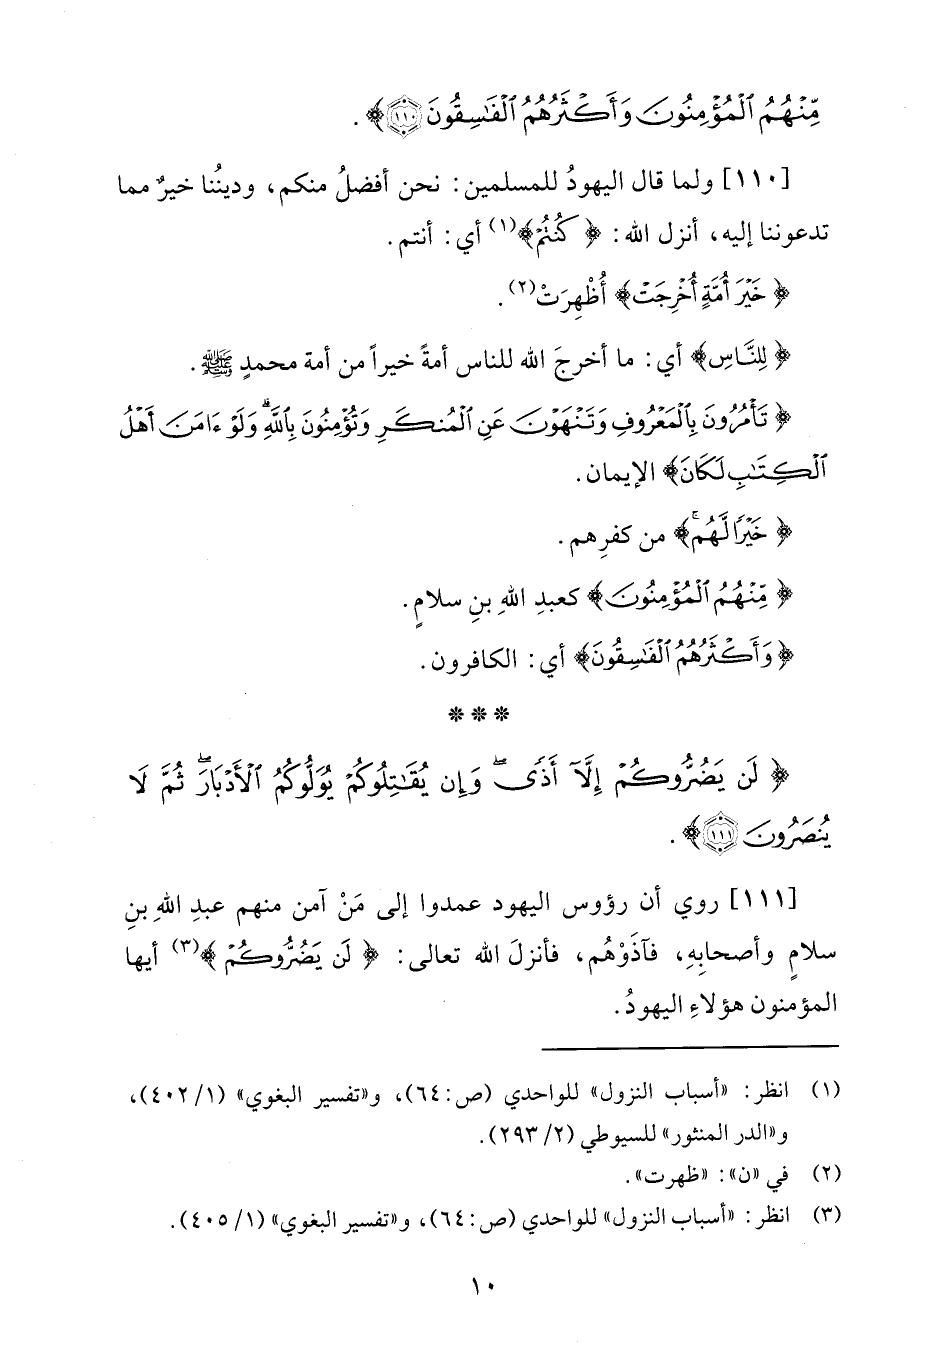 مِّنْهُمُ الْمُؤْمِنُونَ وَأَكْثَرُهُمُ الْفَاسِقُونَ ﴿١١٠﴾ .
[١١٠] ولما قال اليهودُ للمسلمين: نحن أفضلُ منكم، ودينُنا خيرٌ مما
تدعوننا إليه، أنزل الله: ﴿ كُنتُمْ ﴾(١) أي: أنتم.
﴿ خَيْرَ أُمَّةٍ أُخْرِجَتْ ﴾ أُظْهِرَتْ(٢).
﴿ لِلنَّاسِ ﴾ أي: ما أخرجَ الله للناس أمةً خيراً من أمة محمدٍ ﷺ.
﴿ تَأْمُرُونَ بِالْمَعْرُوفِ وَتَنْهَوْنَ عَنِ الْمُنكَرِ وَتُؤْمِنُونَ بِاللَّهِ ۗ وَلَوْ ءَامَنَ أَهْلُ
الْكِتَٰبِ لَكَانَ ﴾ الإيمان.
﴿ خَيْرًا لَّهُم ۚ ﴾ من كفرِهم.
﴿ مِّنْهُمُ الْمُؤْمِنُونَ ﴾ كعبدِ اللهِ بنِ سلامٍ.
﴿ وَأَكْثَرُهُمُ الْفَاسِقُونَ ﴾ أي: الكافرون.
* * *
﴿ لَن يَضُرُّوكُمْ إِلَّآ أَذًى ۖ وَإِن يُقَٰتِلُوكُمْ يُوَلُّوكُمُ الْأَدْبَارَ ۖ ثُمَّ لَا
يُنصَرُونَ ﴿١١١﴾ .
[١١١] روي أن رؤوس اليهود عمدوا إلى مَنْ آمن منهم عبدِ اللهِ بنِ
سلامٍ وأصحابِهِ، فآذَوْهُم، فأنزلَ الله تعالى: ﴿ لَن يَضُرُّوكُمْ ﴾(٣) أيها
المؤمنون هؤلاءِ اليهودُ.
(١) انظر: «أسباب النزول» للواحدي (ص: ٦٤)، و«تفسير البغوي» (١/ ٤٠٢)،
و«الدر المنثور» للسيوطي (٢/ ٢٩٣).
(٢) في «ن»: «ظهرت».
(٣) انظر: «أسباب النزول» للواحدي (ص: ٦٤)، و«تفسير البغوي» (١/ ٤٠٥).
١٠